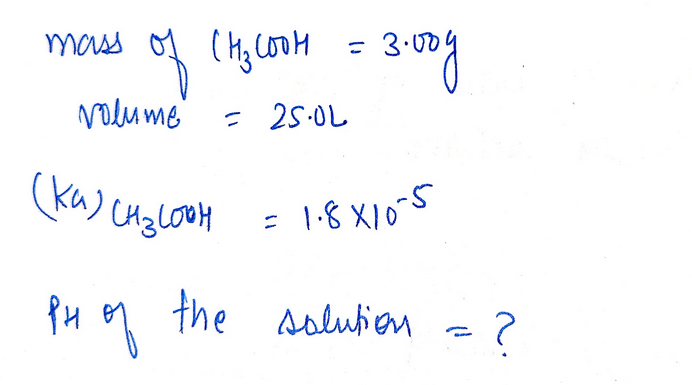 mass of CH3COOH = 3.00g
volume = 25.0L
(Ka) CH3COOH = 1.8 X10-5
PH of the solution = ?